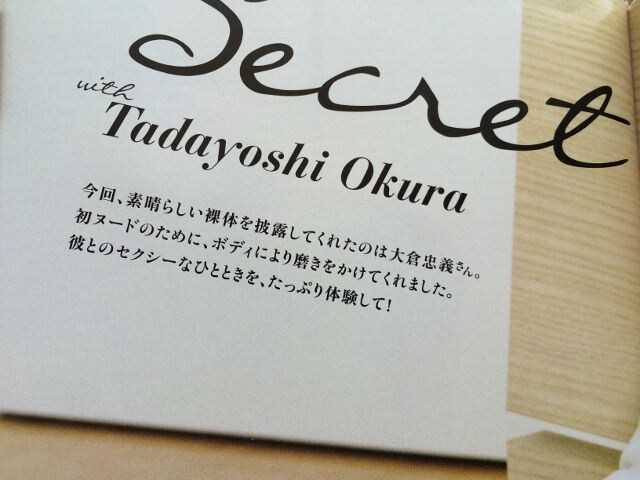 Secret
with
Tadayoshi Okura
今回、素晴らしい裸体を披露してくれたのは大倉忠義さん。
初ヌードのために、ボディにより磨きをかけてくれました。
彼とのセクシーなひとときを、たっぷり体験して!